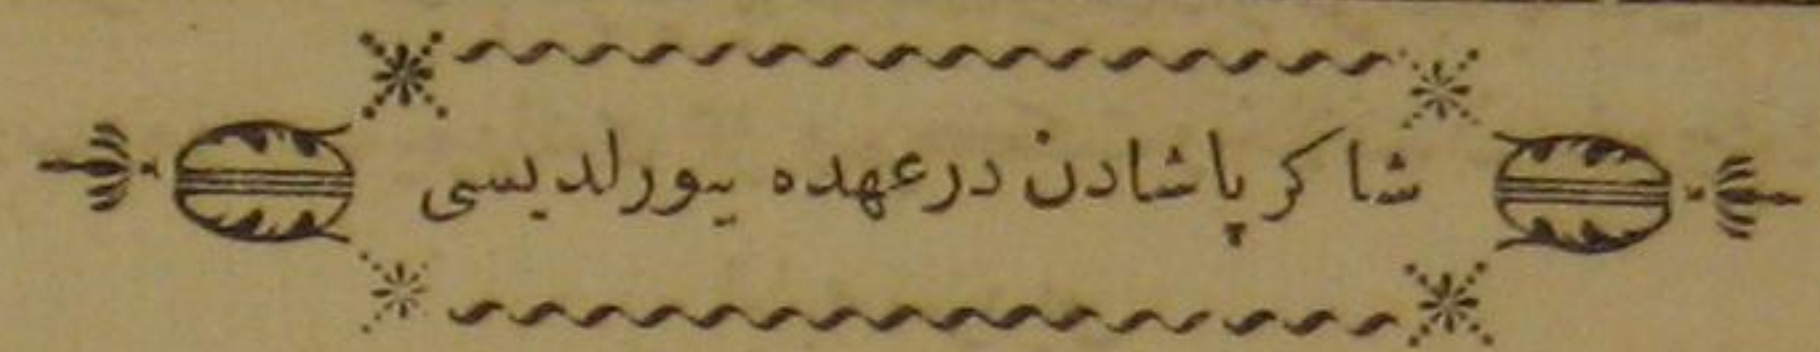 شاكر پاشادن درعهده بیورلدیسی